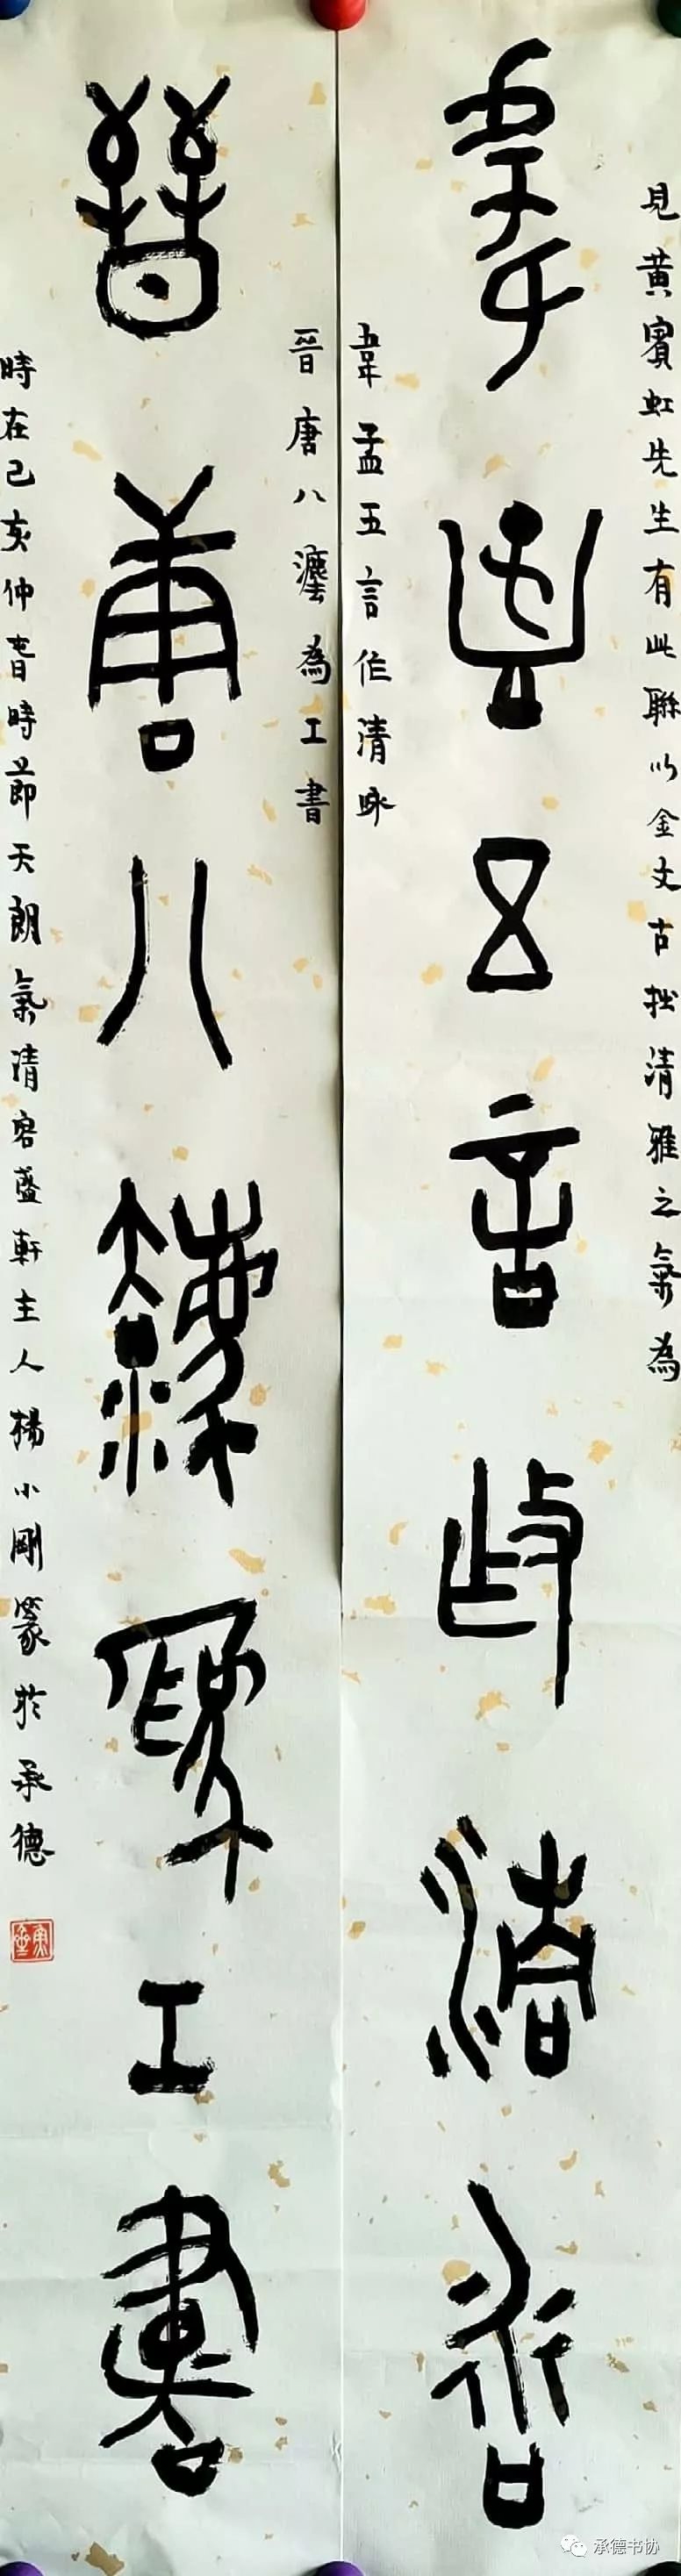 見黃賓虹先生有此聯以金文古拙清雅之氣為
韋孟五言作清咏
韋孟五言乍清咏
晉唐八瀍為工書
晉唐八為工書
時在己亥仲春時節天朗氣清容盦軒主人楊小剛篆於承德
承德书协